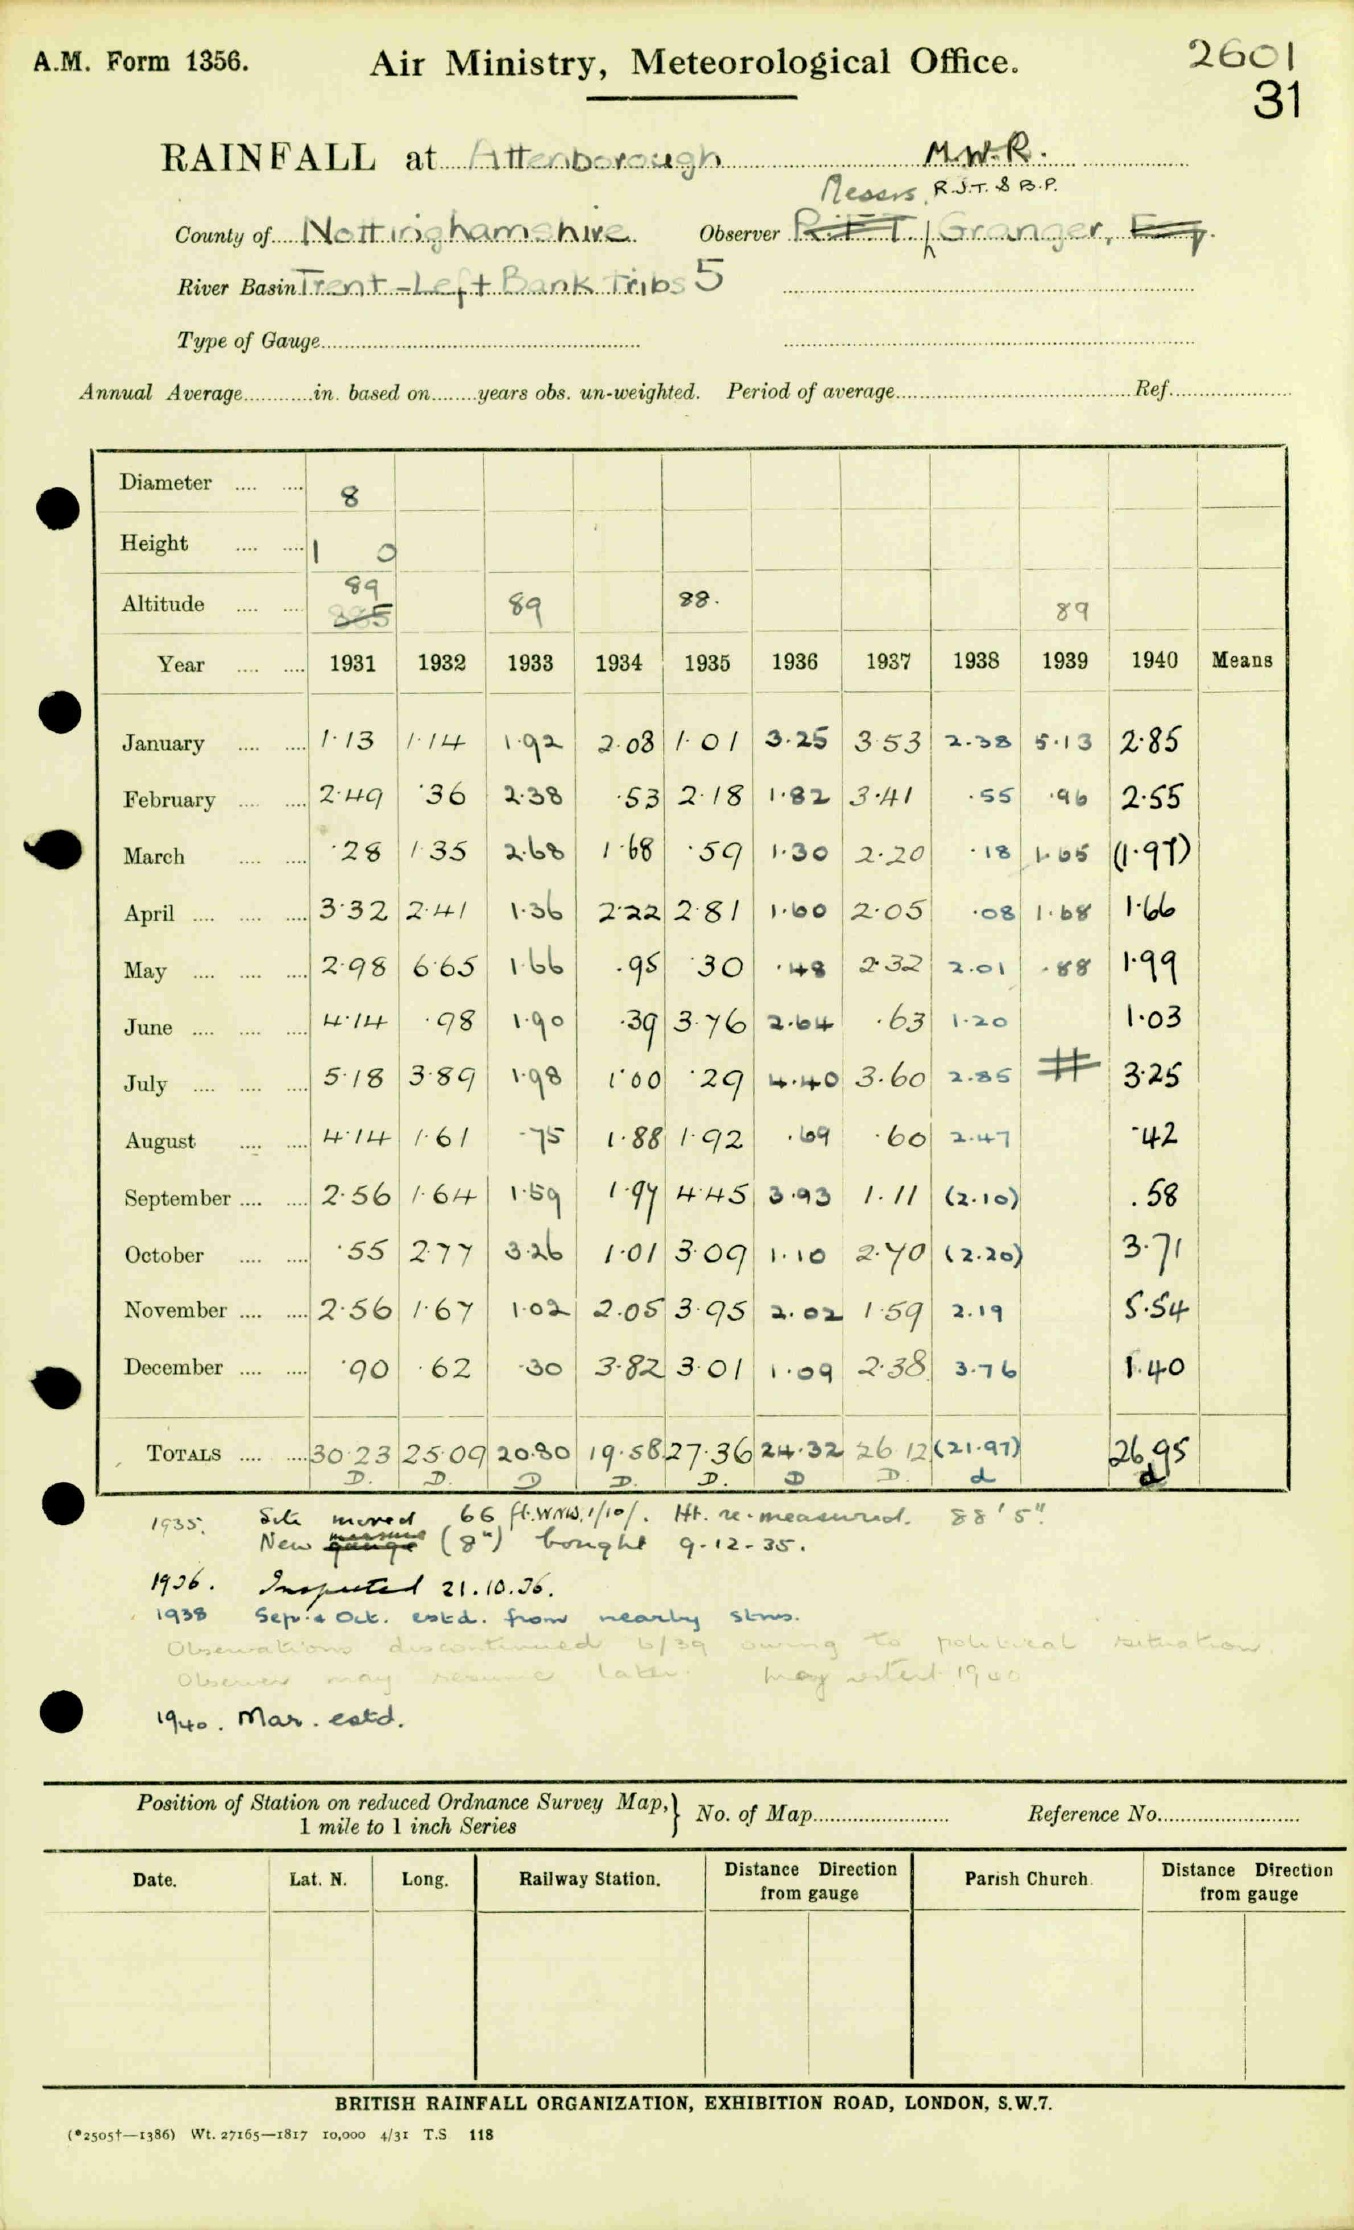 A.M. Form 1356.
Air Ministry, Meteorological Office.
2601
31
RAINFALL at Attenborough M.W.R.
Messrs. R.J.T. & B.P.
County of Nottinghamshire Observer R.F.T. Granger, Esq.
River Basin Trent - Left Bank Tribs 5
Type of Gauge
Annual Average in. based on years obs. un-weighted. Period of average Ref.
Diameter 8
Height 1 0
Altitude 89 885 89 88. 89
Year 1931 1932 1933 1934 1935 1936 1937 1938 1939 1940 Means
January 1.13 1.14 1.92 2.08 1.01 3.25 3.53 2.38 5.13 2.85
February 2.49 .36 2.38 .53 2.18 1.82 3.41 .55 .96 2.55
March .28 1.35 2.68 1.68 .59 1.30 2.20 .18 1.65 (1.97)
April 3.32 2.41 1.36 2.22 2.81 1.60 2.05 .08 1.68 1.66
May 2.98 6.65 1.66 .95 .30 .48 2.32 2.01 .88 1.99
June 4.14 .98 1.90 .39 3.76 2.64 .63 1.20 1.03
July 5.18 3.89 1.98 1.00 .29 4.40 3.60 2.85 # 3.25
August 4.14 1.61 .75 1.88 1.92 .69 .60 2.47 .42
September 2.56 1.64 1.59 1.97 4.45 3.93 1.11 (2.10) .58
October .55 2.77 3.26 1.01 3.09 1.10 2.70 (2.20) 3.71
November 2.56 1.67 1.02 2.05 3.95 2.02 1.59 2.19 5.54
December .90 .62 .30 3.82 3.01 1.09 2.38 3.76 1.40
TOTALS 30.23 25.09 20.80 19.58 27.36 24.32 26.12 (21.97) 26.95
D. D. D D. D. D D. d d
1935. Site moved 66 ft. WNW. 1/10/. Ht. re-measured. 88' 5".
New gauge measure (8") bought 9-12-35.
1936. Inspected 21.10.36.
1938 Sep. & Oct. estd. from nearby stns.
Observations discontinued 6/39 owing to political situation.
Observer may resume later. May restart 1940
1940. Mar. estd.
Position of Station on reduced Ordnance Survey Map, } No. of Map Reference No.
1 mile to 1 inch Series
Date. Lat. N. Long. Railway Station. Distance Direction from gauge Parish Church. Distance Direction from gauge
BRITISH RAINFALL ORGANIZATION, EXHIBITION ROAD, LONDON, S.W.7.
(*2505†—1386) Wt. 27165—1817 10,000 4/31 T.S 118